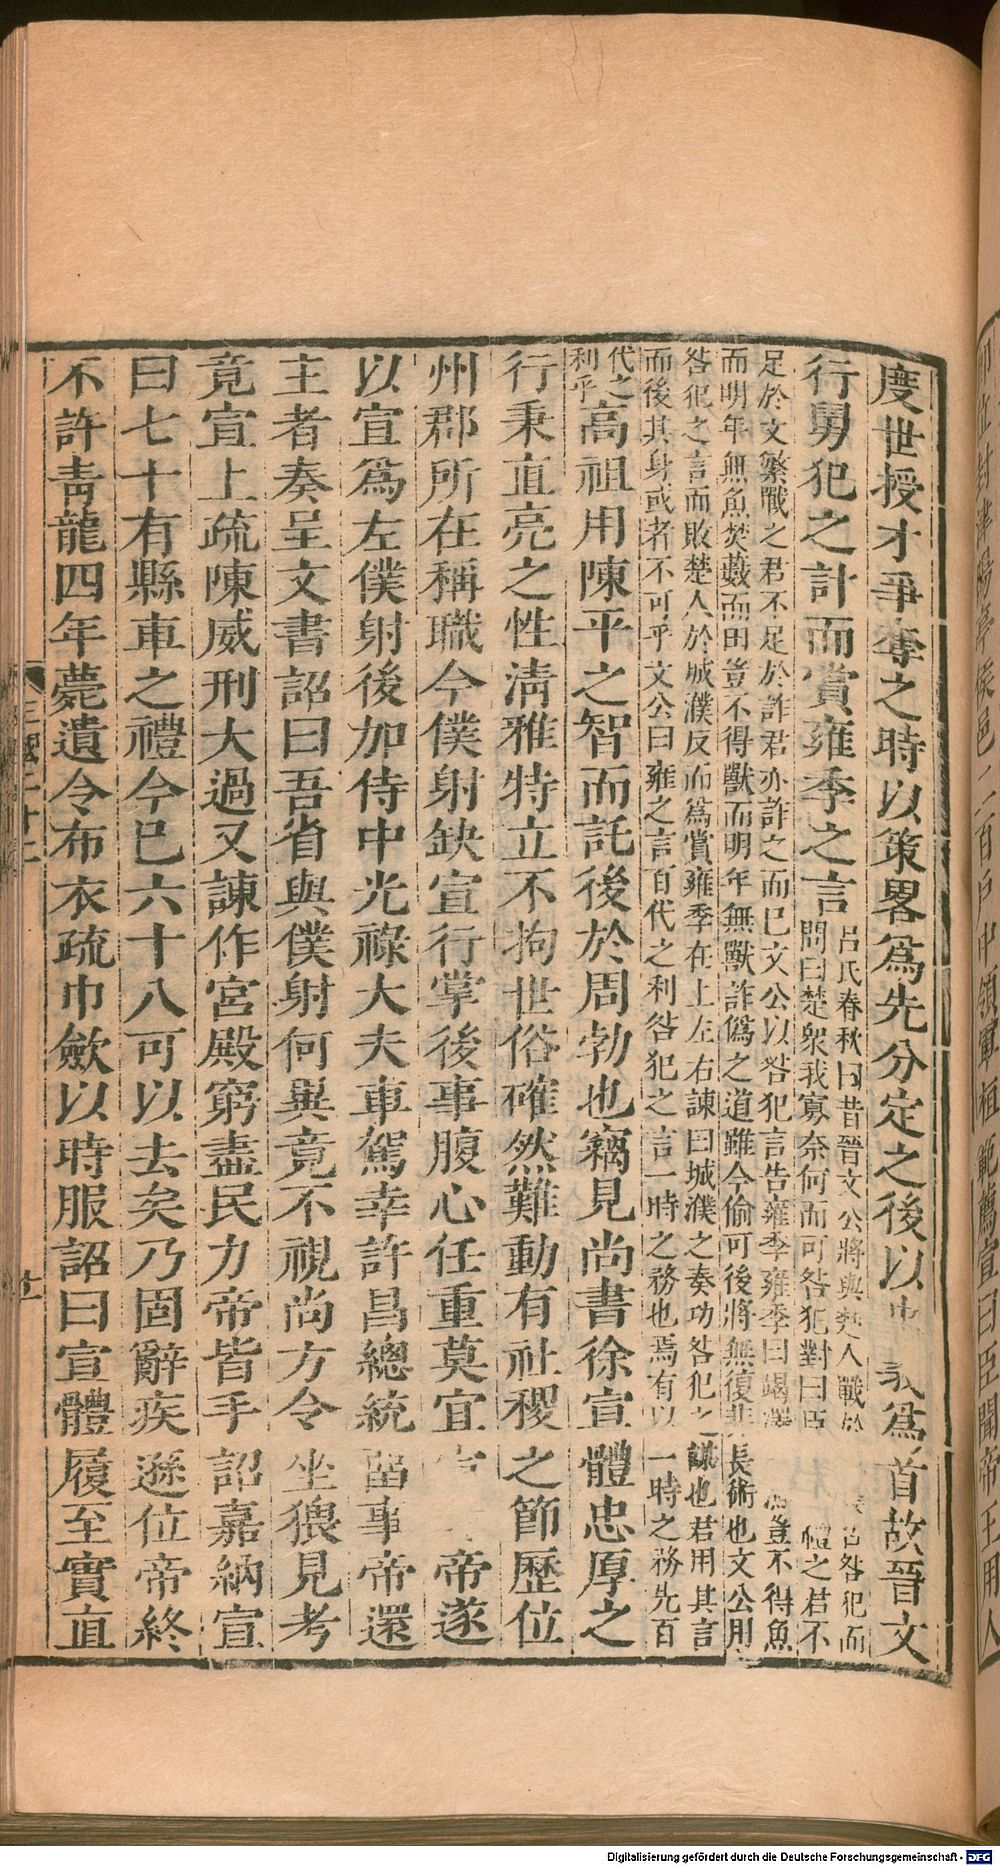 度世授才爭奪之時以策畧爲先分定之後以義爲首故晉文
行舅犯之計而賞雍季之言
呂氏春秋曰昔晉文公將與楚人戰於召咎犯而
問曰楚衆我寡奈何而可咎犯對曰臣禮之君不
足於文繁戰之君不足於詐君亦詐之而已文公以咎犯言告雍季雍季曰竭澤豈不得魚
而明年無魚焚藪而田豈不得獸而明年無獸詐僞之道雖今偷可後將無復非長術也文公用
咎犯之言而敗楚人於城濮反而爲賞雍季在上左右諫曰城濮之奏功咎犯之謀也君用其言
而後其身或者不可乎文公曰雍之言百代之利咎犯之言一時之務也焉有以一時之務先百
代之
利乎
高祖用陳平之智而託後於周勃也竊見尚書徐宣體忠厚之
行秉直亮之性淸雅特立不拘世俗確然難動有社稷之節歷位
州郡所在稱職今僕射缺宣行掌後事腹心任重莫宜帝遂
以宣爲左僕射後加侍中光祿大夫車駕幸許昌總統留事帝還
主者奏呈文書詔曰吾省與僕射何異竟不視尚方令坐猥見考
竟宣上疏陳威刑大過又諫作宮殿窮盡民力帝皆手詔嘉納宣
曰七十有縣車之禮今已六十八可以去矣乃固辭疾遜位帝終
不許靑龍四年薨遺令布衣疏巾斂以時服詔曰宣體履至實直
三國二十二